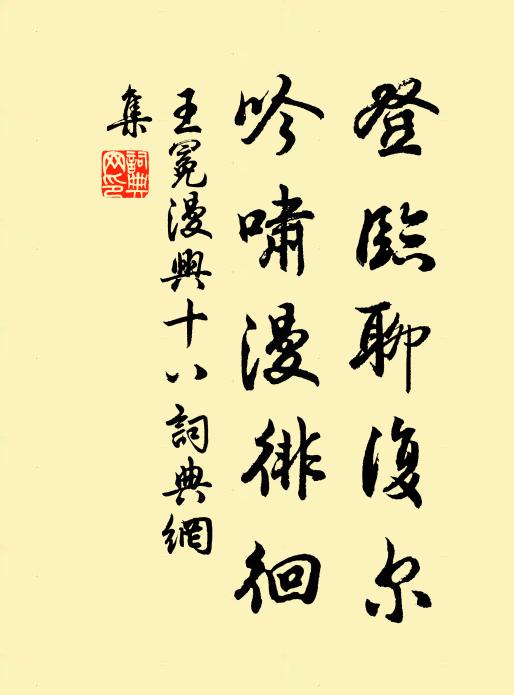 登臨聊復尔
吟嘯漫徘徊
王冕漫興十八詞典網
集
詞典
网印